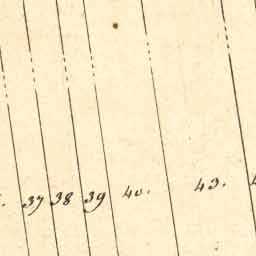 37 38 39 40. 43.